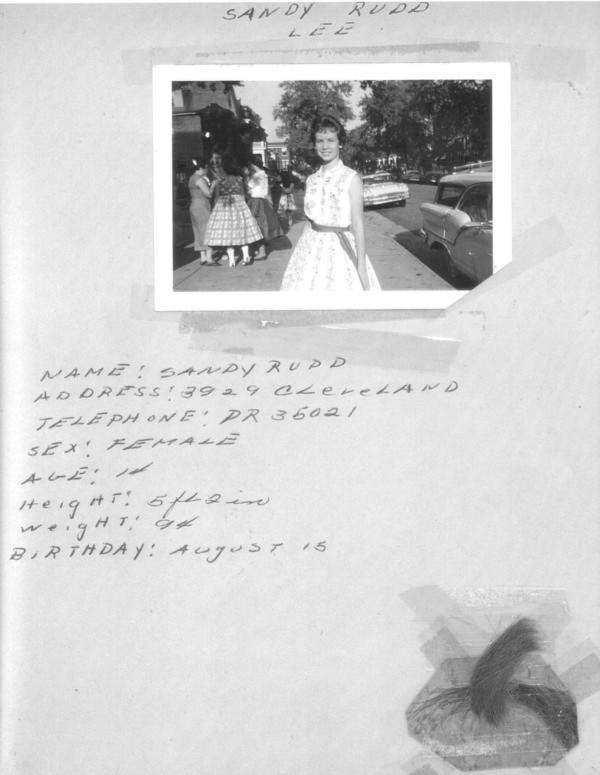 SANDY RUDD
LEE
NAME: SANDY RUDD
ADDRESS: 3929 CLeveLAND
TELEPHONE: PR 35021
SEX: FEMALE
AGE: 14
HeigHT: 5 ft 2 in
weigHT: 94
BiRTHDAY: August 15